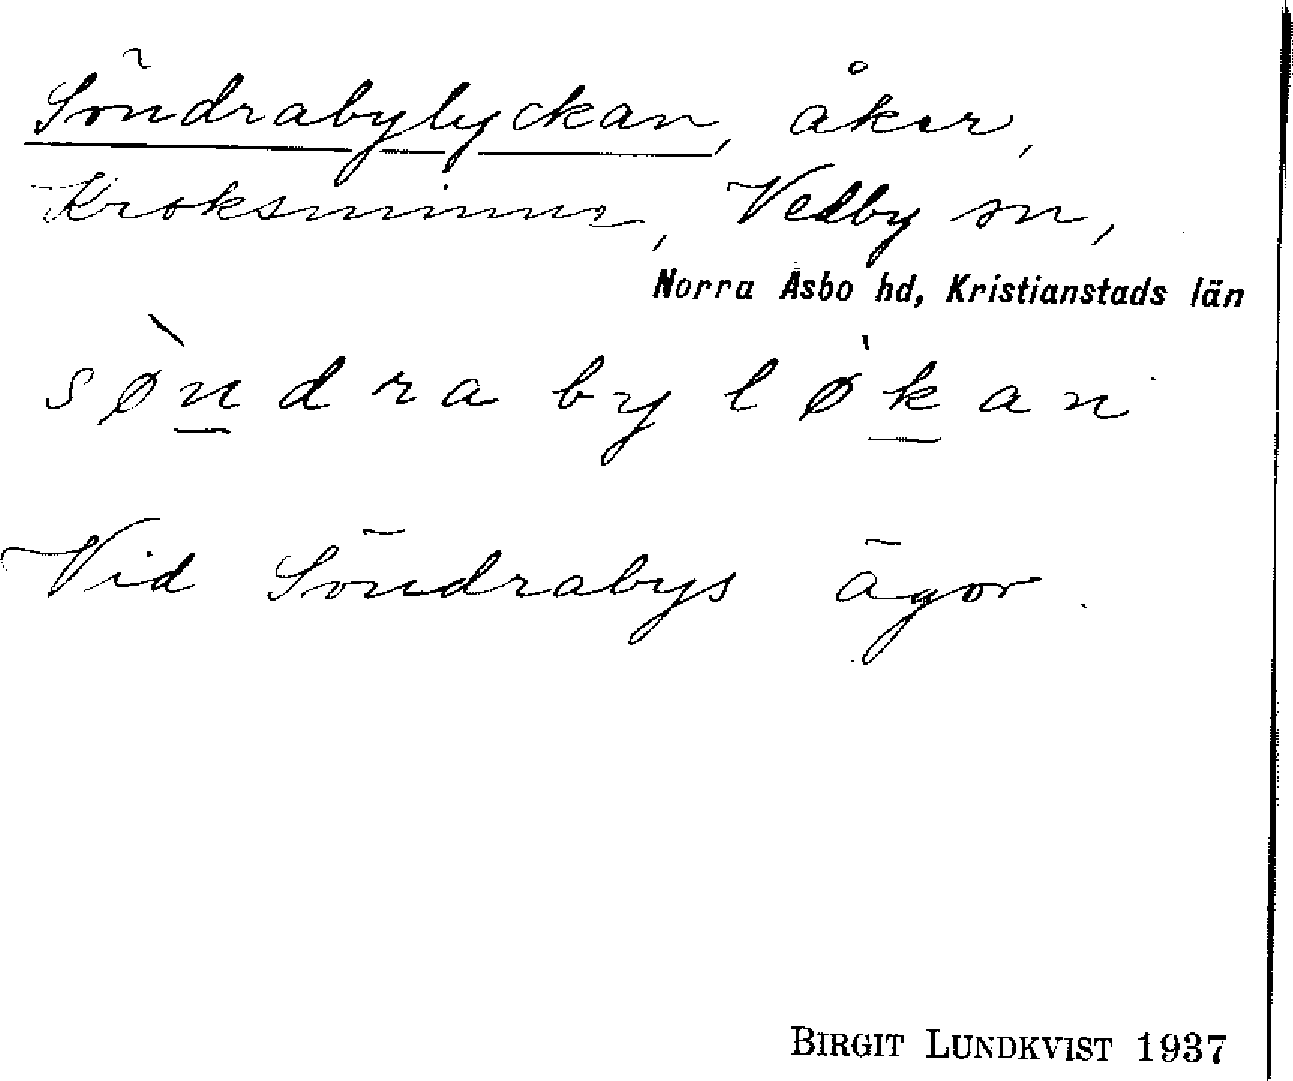 Söndrabylyckan, åker,
Kroksminne, Vedby sn,
Norra Åsbo hd, Kristianstads län
sø̀ndra bylø̀kan
Vid Söndrabys ägor.
BIRGIT LUNDKVIST 1937